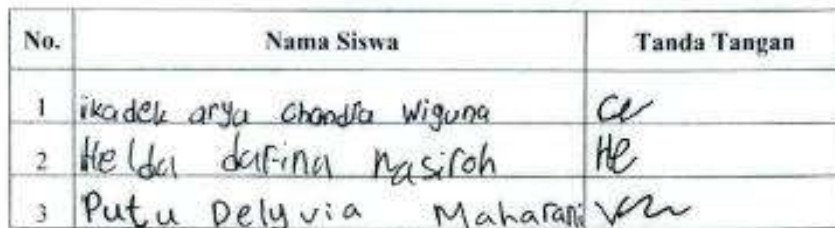 No. Nama Siswa Tanda Tangan
1 ikadek arya Chandra Wiguna
2 Helda dafina nasiroh He
3 Putu Delyvia Maharani